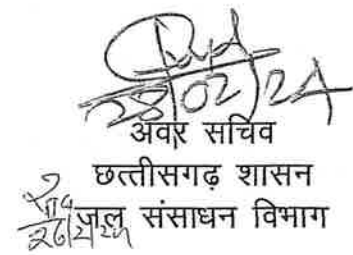 28/02/24
अवर सचिव
छत्तीसगढ़ शासन
जल संसाधन विभाग